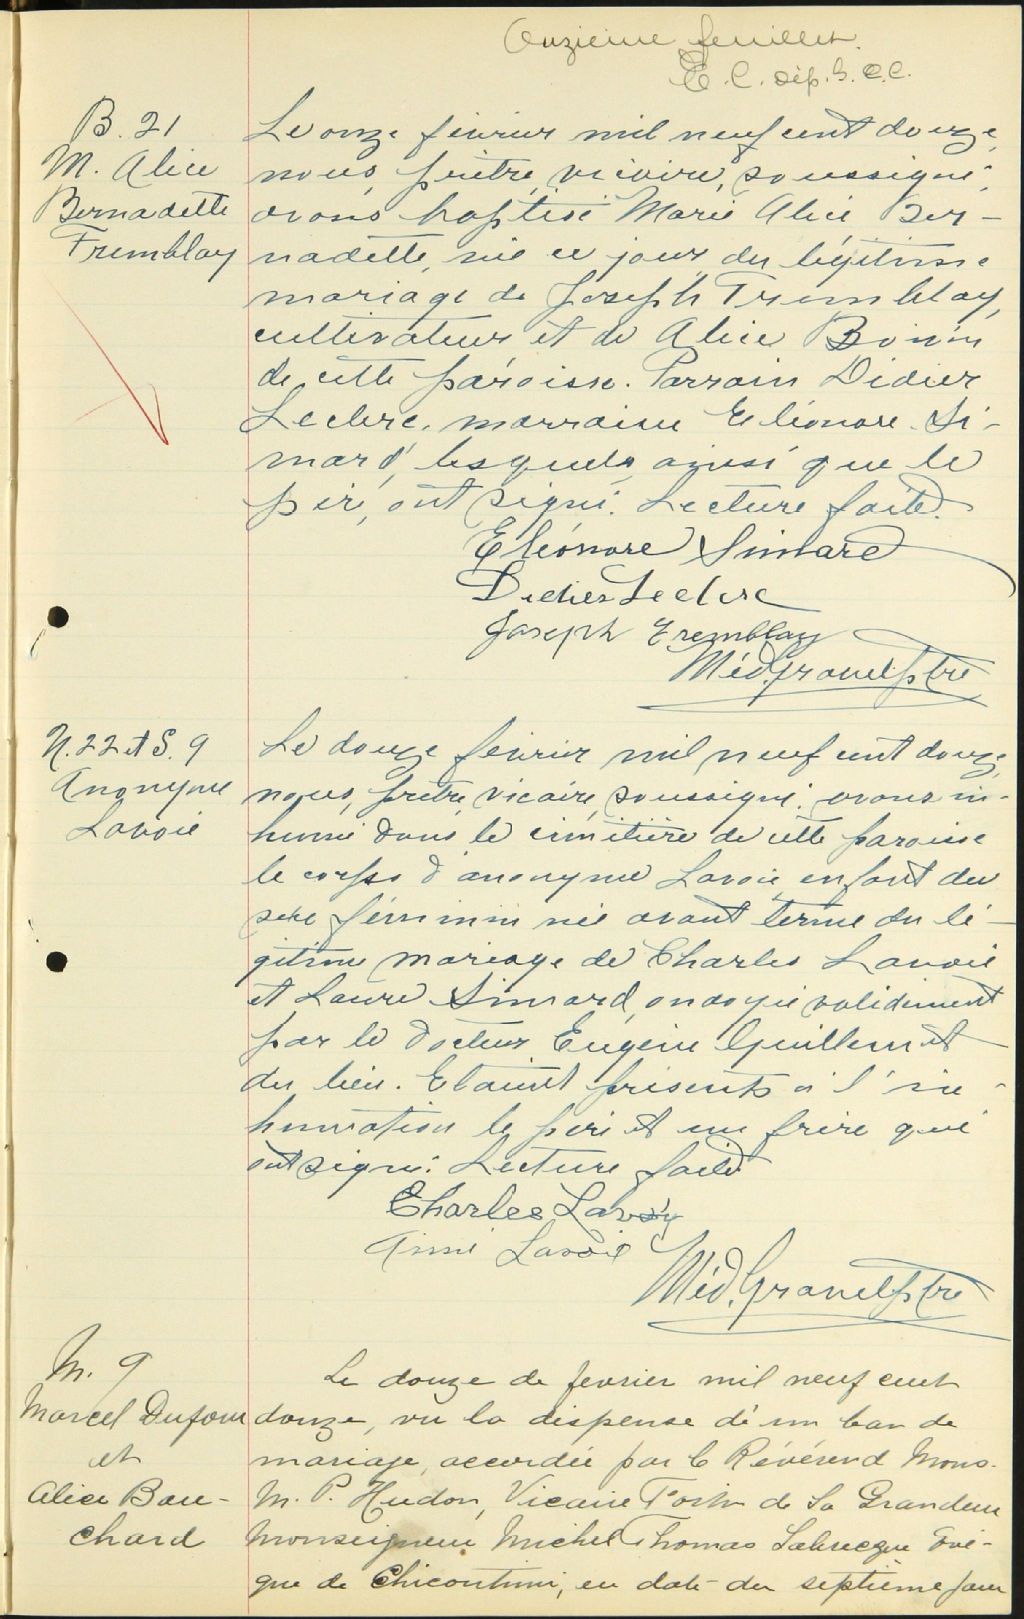 Onzième feuillet.
B. 21
M. Alice
Bernadette
Tremblay
Le onze février mil neuf cent douze,
nous, prêtre, vicaire, soussigné,
avons baptisé Marie Alice Ber-
nadette, née ce jour, du légitime
mariage de Joseph Tremblay,
cultivateur et de Alice Boivin
de cette paroisse. Parrain Didier
Leclerc, marraine Eléonore Si-
mard, lesquels ainsi que le
père, ont signé. Lecture faite.
Eléonore Simard
Didier Leclerc
Joseph Tremblay
Méd. Gravel, ptre
N. 22 et S. 9
Anonyme
Lavoie
Le douze février mil neuf cent douze,
nous, prêtre, vicaire, soussigné, avons in-
humé dans le cimetière de cette paroisse
le corps d'anonyme Lavoie, enfant du
sexe féminin née avant terme du lé-
gitime mariage de Charles Lavoie
et Laure Simard, ondoyée validement
par le docteur Eugène Guillemette
du lieu. Etaient présents à l'in-
humation le père et un frère qui
ont signé. Lecture faite
Charles Lavoy
Aimé Lavoie
Méd. Gravel, ptre
M. 9
Marcel Dufour
et
Alice Bou-
chard
Le douze de février mil neuf cent
douze, vu la dispense d'un ban de
mariage, accordée par le Révérend Mons.
M. P. Hudon, Vicaire de Sa Grandeur
Monseigneur Michel Thomas Labrecque Evê-
que de Chicoutimi, en date du septième jour